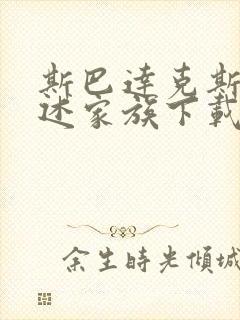 斯巴達克斯
述家族下載
余生時光傾城